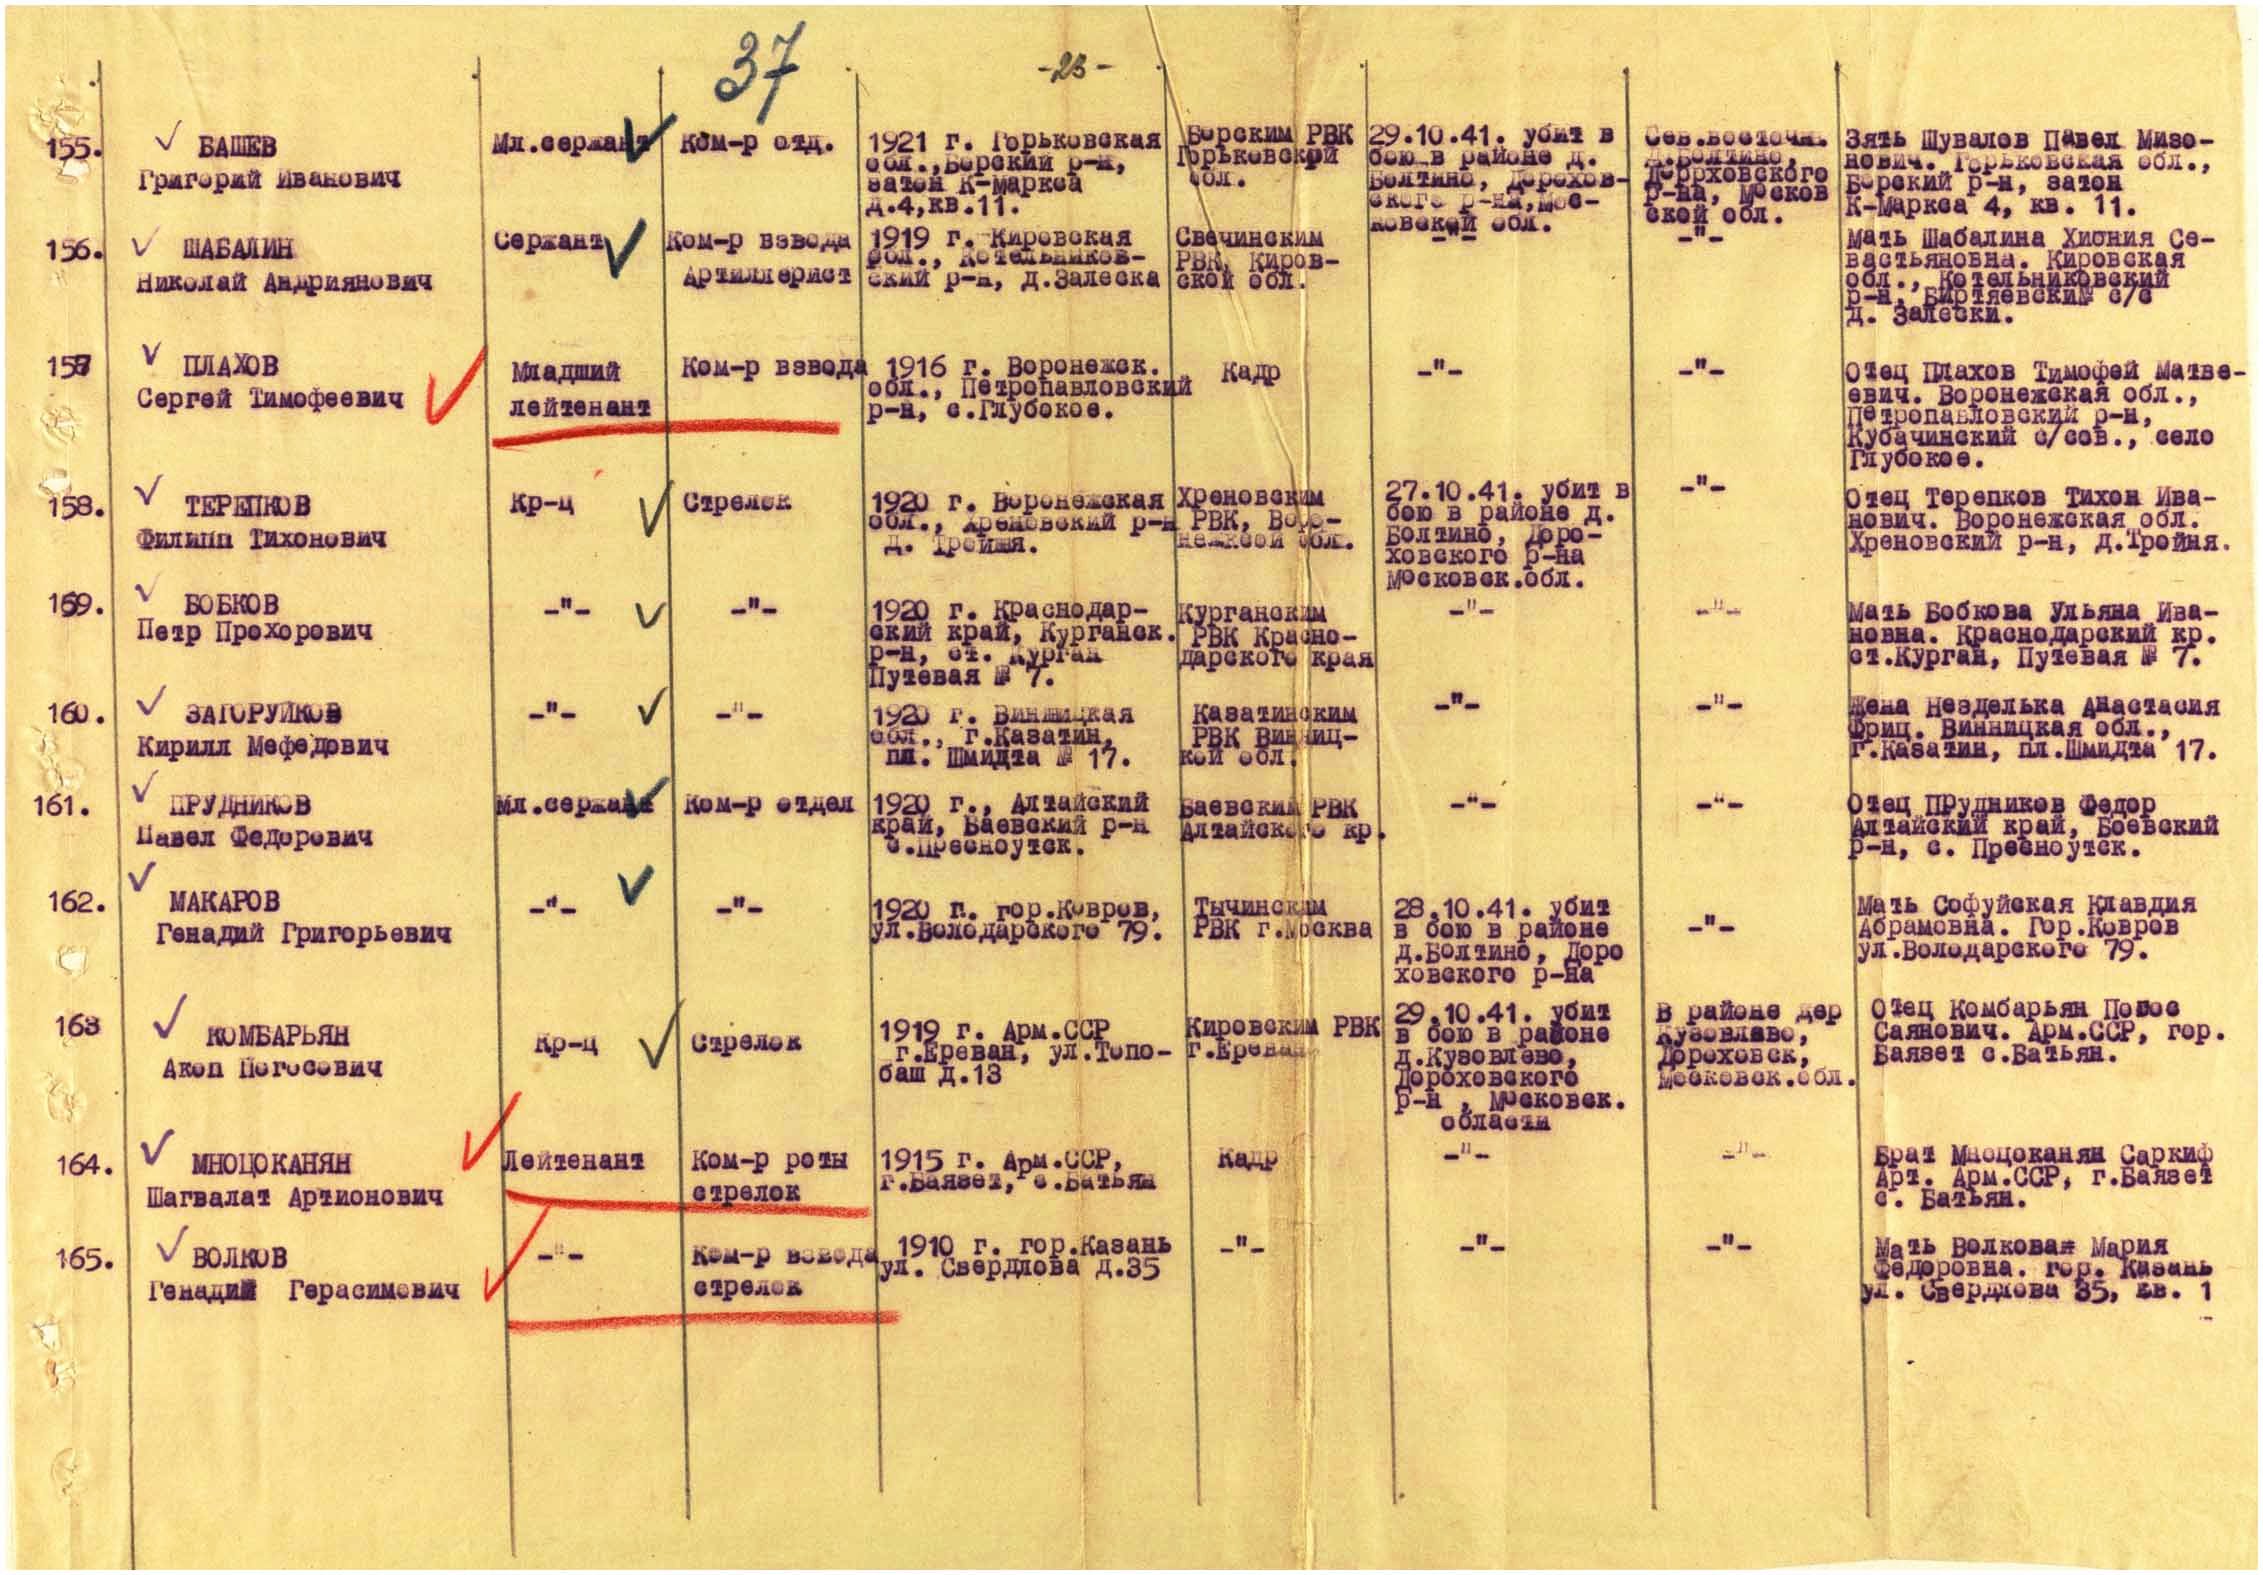 37
-23-
155.
БАШЕВ
Григорий Иванович
Мл.сержант
Ком-р отд.
1921 г. Горьковская
обл.,Борский р-н,
затон К-Маркса
д.4,кв.11.
Борским РВК
Горьковской
обл.
29.10.41. убит в
бою в районе д.
Болтино, Дорохов-
ского р-на,Мос-
ковской обл.
Сев.восточн.
д.Болтино,
Дороховского
р-на, Москов
ской обл.
Зять Шувалов Павел Мизо-
нович. Горьковская обл.,
Борский р-н, затон
К-Маркса 4, кв. 11.
156.
ШАБАЛИН
Николай Андриянович
Сержант
Ком-р взвода
Артиллерист
1919 г. Кировская
обл., Котельников-
ский р-н, д.Залеска
Свечинским
РВК, Киров-
ской обл.
-"-
-"-
Мать Шабалина Хиония Се-
вастьяновна. Кировская
обл., Котельниковский
р-н, Биртяевский с/с
д. Залески.
157
ПЛАХОВ
Сергей Тимофеевич
Младший
лейтенант
Ком-р взвода
1916 г. Воронежск.
обл., Петропавловский
р-н, с.Глубокое.
Кадр
-"-
-"-
Отец Плахов Тимофей Матве-
евич. Воронежская обл.,
Петропавловский р-н,
Кубачинский с/сов., село
Глубокое.
158.
ТЕРЕПКОВ
Филипп Тихонович
Кр-ц
Стрелок
1920 г. Воронежская
обл., Хреновский р-н
д. Тройня.
Хреновским
РВК, Воро-
нежксой обл.
27.10.41. убит в
бою в районе д.
Болтино, Доро-
ховского р-на
Московск.обл.
-"-
Отец Терепков Тихон Ива-
нович. Воронежская обл.
Хреновский р-н, д.Тройня.
159.
БОБКОВ
Петр Прохорович
-"-
-"-
1920 г. Краснодар-
ский край, Курганск.
р-н, ст. Курган
Путевая № 7.
Курганским
РВК Красно-
дарского края
-"-
-"-
Мать Бобкова Ульяна Ива-
новна. Краснодарский кр.
ст.Курган, Путевая № 7.
160.
ЗАГОРУЙКОВ
Кирилл Мефедович
-"-
-"-
1920 г. Винницкая
обл., г.Казатин,
пл. Шмидта № 17.
Казатинским
РВК Винниц-
кой обл.
-"-
-"-
Жена Незделька Анастасия
Фриц. Винницкая обл.,
г.Казатин, пл.Шмидта 17.
161.
ПРУДНИКОВ
Павел Федорович
Мл.сержант
Ком-р отдел
1920 г., Алтайский
край, Баевский р-н
с.Пресноутск.
Баевским РВК
Алтайского кр.
-"-
-"-
Отец ПРудников Федор
Алтайский край, Боевский
р-н, с. Пресноутск.
162.
МАКАРОВ
Генадий Григорьевич
-"-
-"-
1920 г. гор.Ковров,
ул.Володарского 79.
Тычинским
РВК г.Москва
28.10.41. убит
в бою в районе
д.Болтино, Доро
ховского р-на
-"-
Мать Софуйская Клавдия
Абрамовна. Гор.Ковров
ул.Володарского 79.
163
КОМБАРЬЯН
Акоп Погосович
Кр-ц
Стрелок
1919 г. Арм.ССР
г.Ереван, ул.Топо-
баш д.13
Кировским РВК
г.Ереван
29.10.41. убит
в бою в районе
д.Кузовлево,
Дороховского
р-н , Московск.
области
В районе дер
Кузовлево,
Дороховск,
Московск.обл.
Отец Комбарьян Погос
Саянович. Арм.ССР, гор.
Баязет с.Батьян.
164.
МНОЦОКАНЯН
Шагвалат Артионович
Лейтенант
Ком-р роты
стрелок
1915 г. Арм.ССР,
г.Баязет, с.Батьян
Кадр
-"-
-"-
Брат Мноцоканян Саркиф
Арт. Арм.ССР, г.Баязет
с. Батьян.
165.
ВОЛКОВ
Генадий Герасимович
-"-
Ком-р взвода
стрелок
1910 г. гор.Казань
ул. Свердлова д.35
-"-
-"-
-"-
Мать Волкова Мария
Федоровна. гор. Казань
ул. Свердлова 35, кв. 1